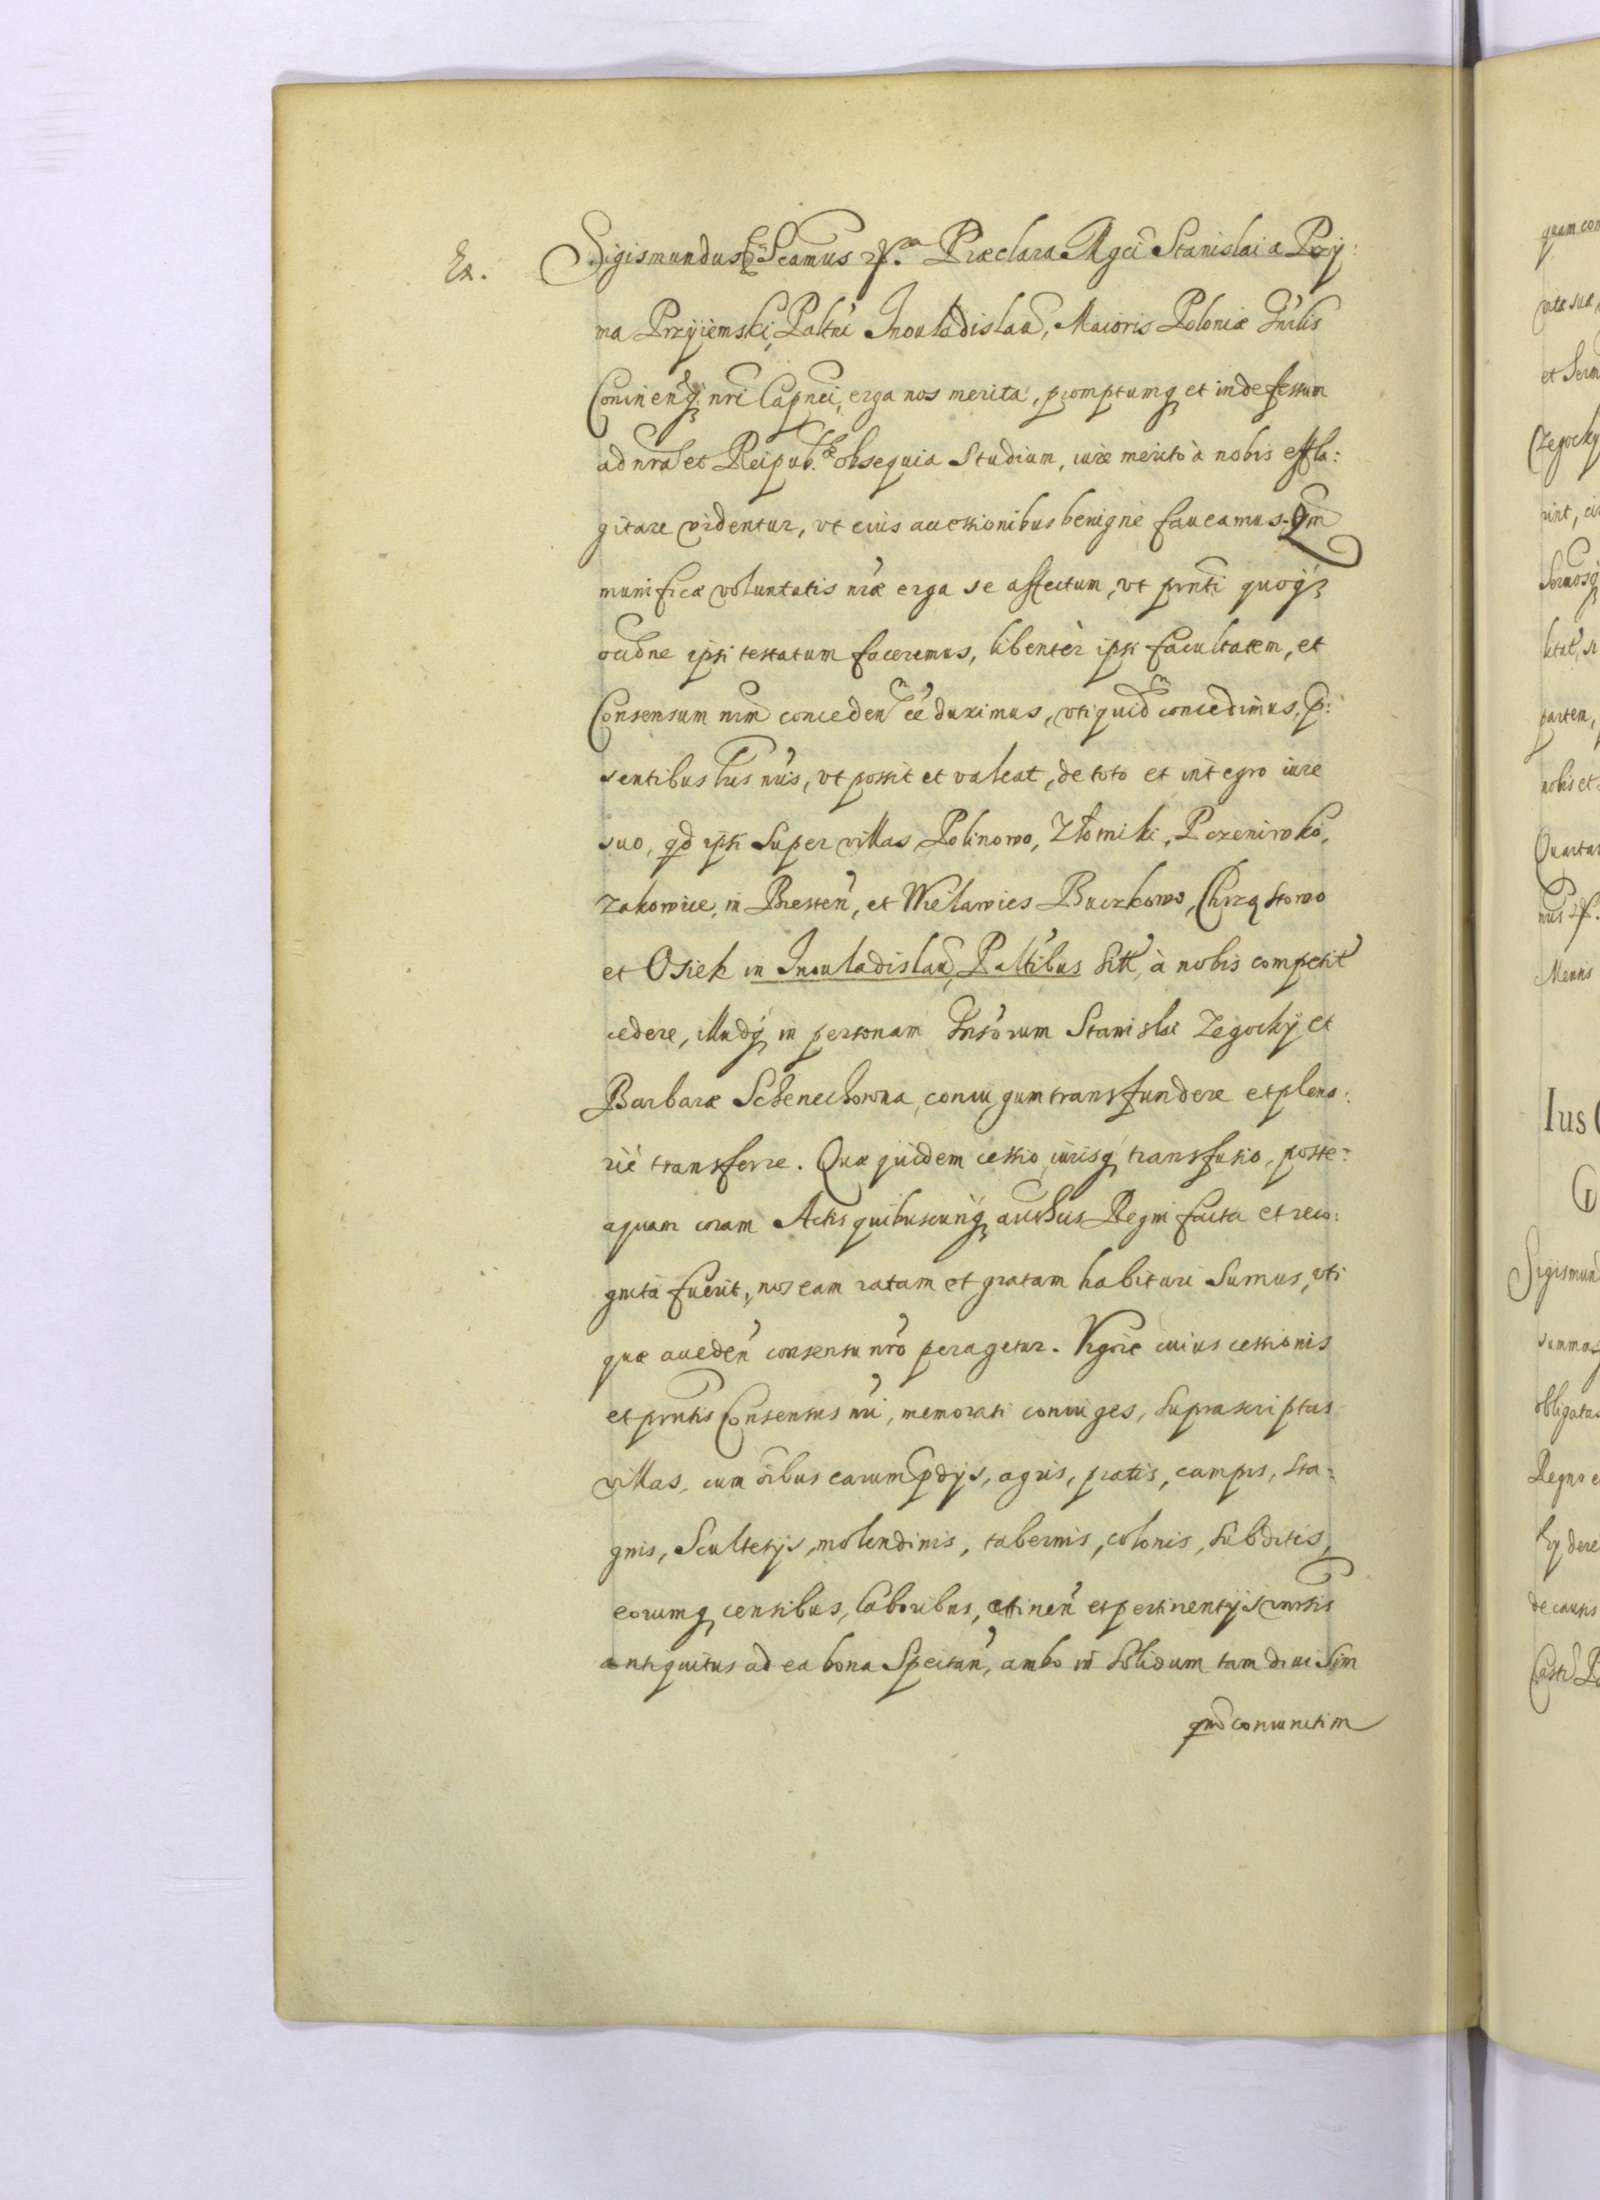 Ex.
Sigismundus Scamus Præclara Mgci Stanislai a Przy:
ma Przyiemski, Paltni Inouladislau, Maioris Poloniæ Gnrlis
nri Capnei, erga nos merita, promptumq et indefessum
ad nra et Reipub. obsequia Studium, iure merito à nobis effla:
gitare videntur, vt eius accessionibus benigne faueamus. Qm
munificæ voluntatis nræ erga se affectum, vt pnti quoq
ipsi testatum faceremus, libenter ipsi facultatem, et
Consensum nrm conceden ee duximus, vti quid concedimus, p:
sentibus lris nris, vt possit et valeat, de toto et integro iure
suo, qd ipsi Super villas Polinowo, Złomiki,
Zakowice, in Bresten, et Wielawies Buczkowo, Chrząstowo
et Osiek in Inouladislau, Paltibus à nobis competit
cedere, illudq in personam Gnsorum Stanislai Zegocky et
Barbaræ coniugum transfundere et plena:
rie transferre. Quæ quidem cessio iurisq transfusio, poste:
aquam coram Actis quibuscunq authcis Regni facta et reco:
gnita fuerit, nos eam ratam et gratam habituri Sumus, vti
quæ acceden consensu nro peragetur. Vigore cuius cessionis
et pntis Consensus nri, memorati coniuges, suprascriptas
villas, cum oibus earum pdijs, agris, pratis, campis, sta:
gnis, Scultetijs, molendinis, tabernis, colonis, subditis,
eorumq censibus, laboribus, attinen et pertinentijs
antiquitus ad ea bona Spectan, ambo in Solidum tam diuisim
qm coniunctim
quam con
vitæ suæ
et Serm
Zegocky
rint, ci
partem,
nobis et
Quartar
Mensis
Ius
Sigismun
summas
obligatas
Regno e
de causis